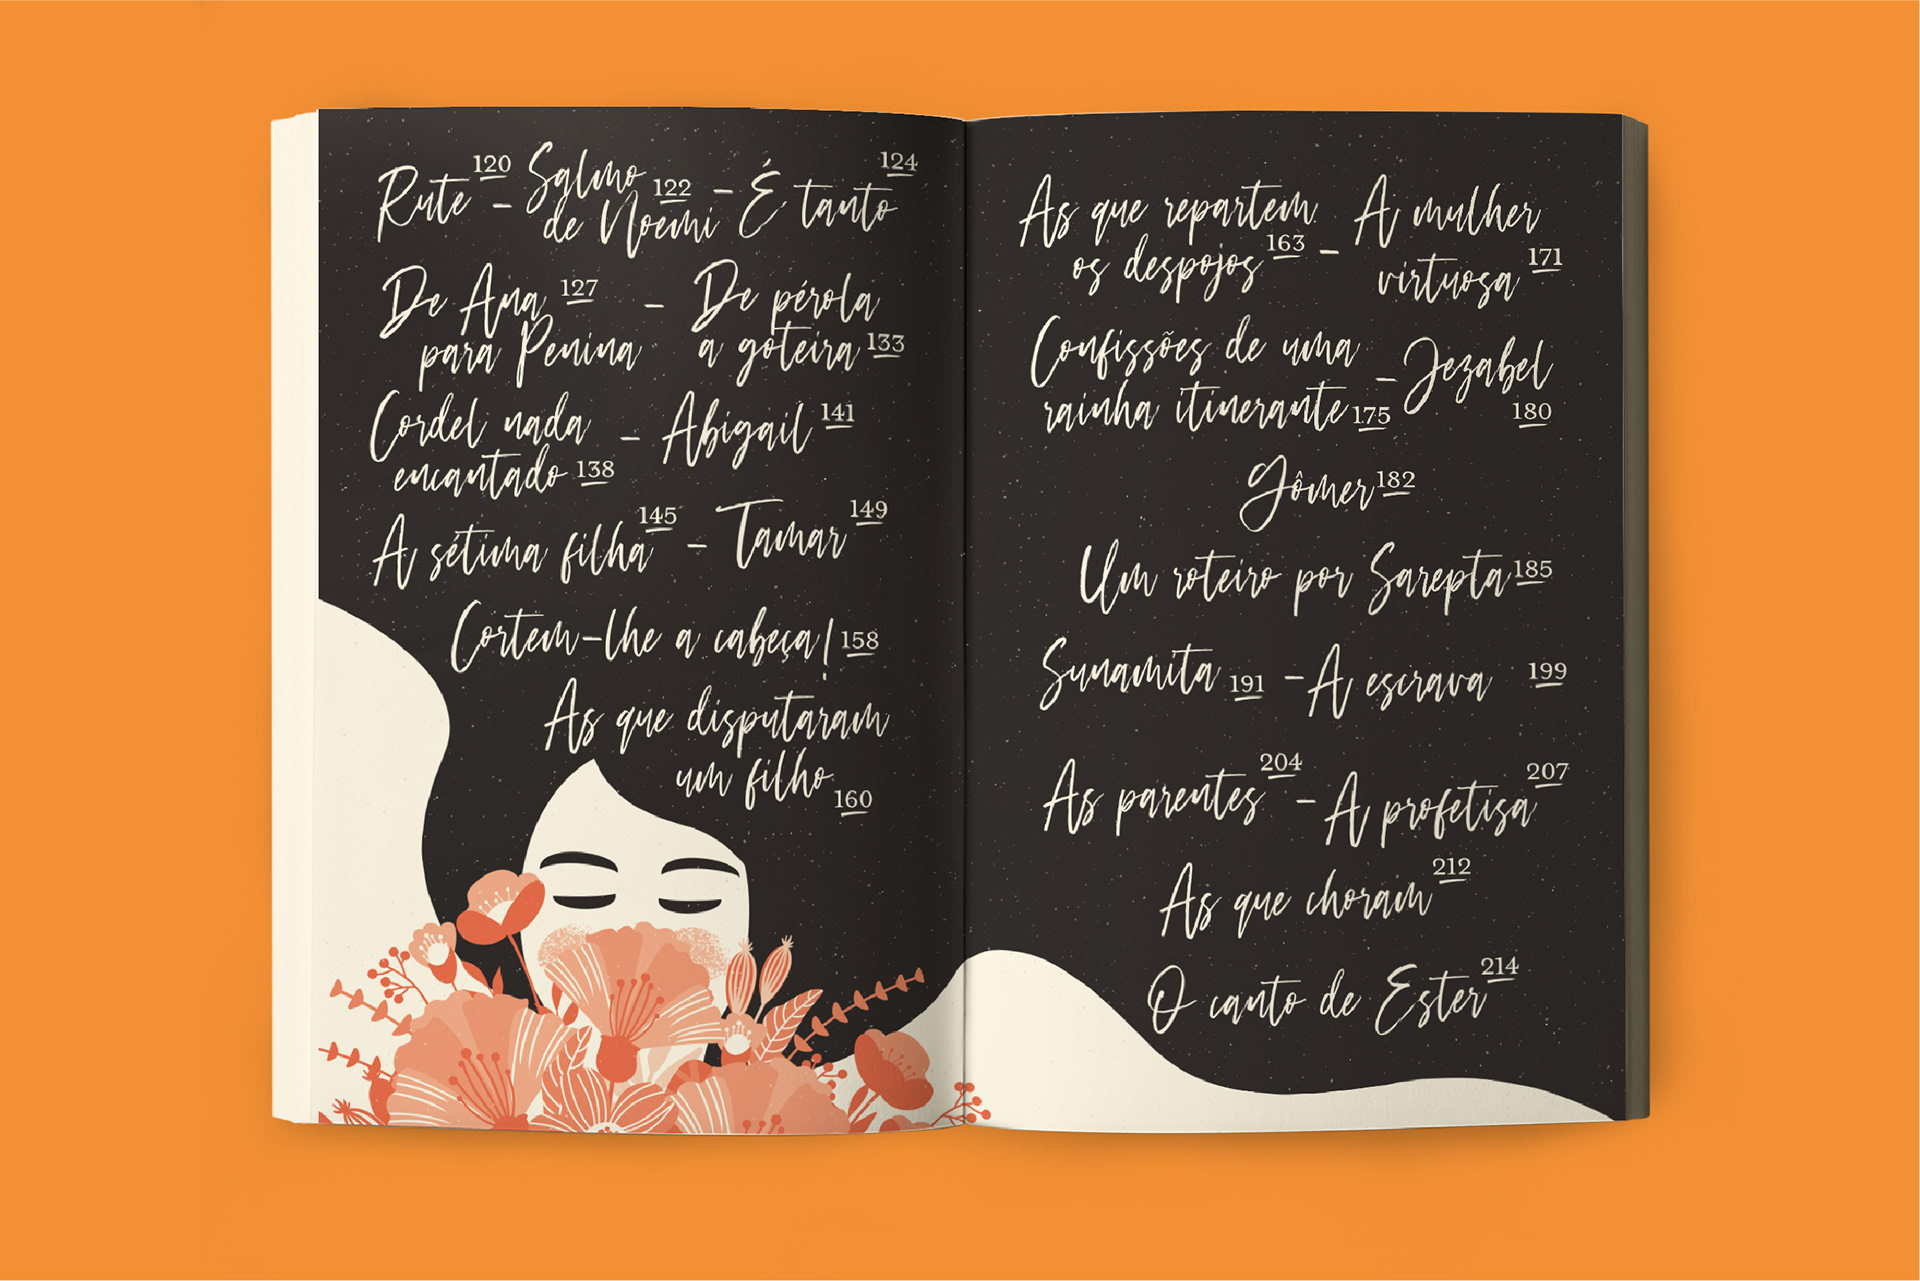 Rute 120 - Salmo de Noemi 122 - É tanto 124
De Ana 127 - De pérola
para Penina a goteira 133
Cordel nada - Abigail 141
encantado 138
A sétima filha 145 - Tamar 149
Cortem-lhe a cabeça! 158
As que disputaram
um filho 160
As que repartem - A mulher
os despojos 163 virtuosa 171
Confissões de uma - Jezabel
rainha itinerante 175 180
Gômer 182
Um roteiro por Sarepta 185
Sunamita 191 - A escrava 199
As parentes 204 - A profetisa 207
As que choram 212
O canto de Ester 214